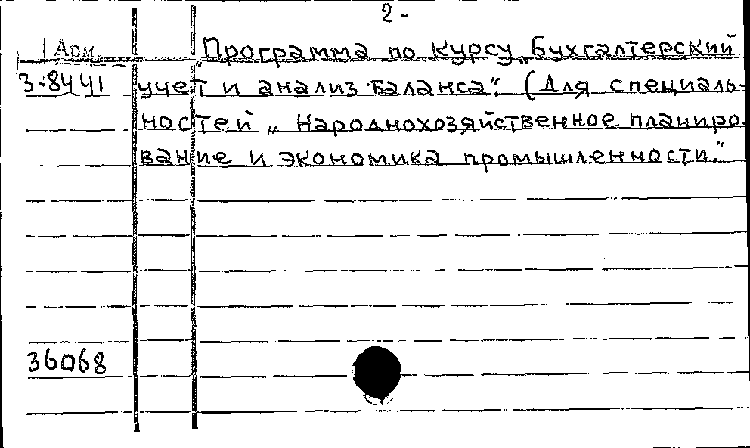 2-
Арм. „Программа по курсу „Бухгалтерский
3-8441 учет и анализ баланса“. (Для специаль-
ностей „Народнохозяйственное планиро-
вание и экономика промышленности.“
36068